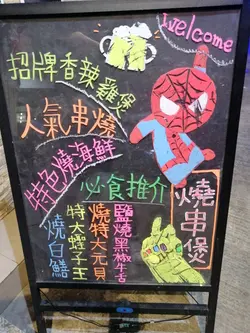 Welcome
招牌香辣雞煲
人氣串燒
特色燒海鮮
必食推介
燒串煲
鹽燒黑椒牛舌
燒特大元貝
特大蟶子王
燒白鱔